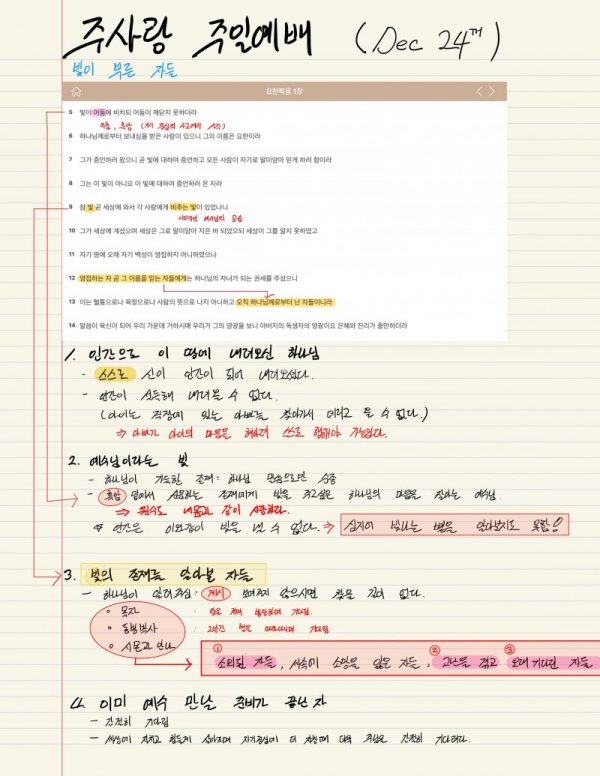 주사랑 주일예배 (Dec 24th)
빛이 부른 자들
요한복음 1장
5 빛이 어둠에 비치되 어둠이 깨닫지 못하더라
6 하나님께로부터 보내심을 받은 사람이 있으니 그의 이름은 요한이라
7 그가 증언하러 왔으니 곧 빛에 대하여 증언하고 모든 사람이 자기로 말미암아 믿게 하려 함이라
8 그는 이 빛이 아니요 이 빛에 대하여 증언하러 온 자라
9 참 빛 곧 세상에 와서 각 사람에게 비추는 빛이 있었나니
예수님의 모습
10 그가 세상에 계셨으며 세상은 그로 말미암아 지은 바 되었으되 세상이 그를 알지 못하였고
11 자기 땅에 오매 자기 백성이 영접하지 아니하였으나
12 영접하는 자 곧 그 이름을 믿는 자들에게는 하나님의 자녀가 되는 권세를 주셨으니
13 이는 혈통으로나 육정으로나 사람의 뜻으로 나지 아니하고 오직 하나님께로부터 난 자들이니라
14 말씀이 육신이 되어 우리 가운데 거하시매 우리가 그의 영광을 보니 아버지의 독생자의 영광이요 은혜와 진리가 충만하더라
1. 인간으로 이 땅에 내려오신 하나님
- 스스로 신이 인간이 되어 내려오셨다.
- 인간이 설득해 내려올 수 없다.
(아이는 직장에 있는 아빠를 찾아가서 데리고 올 수 없다.)
⇒ 아빠가 아이의 마음을 헤아려 스스로 행해야 가능하다.
2. 예수님이라는 빛
- 하나님이 기뻐한 존재 : 하나님 말씀으로만 순종
- 흑암 앞에서 신음하는 존재에게 빛을 주고싶은 하나님의 마음을 전하는 예수님
⇒ 원수도 내몸과 같이 사랑하라.
* 인간은 이와같이 빛을 낼 수 없다. ⇒ 심지어 빛나는 별을 알아보지도 못함!
3. 빛의 존재를 알아볼 자들
- 하나님이 알려주심 : 계시 보여주지 않으면 찾을 길이 없다.
• 목자
• 동방박사
• 시므온과 안나
① 소외된 자들, 사회에 소망을 잃은 자들, ② 고난을 겪고 ③ 오래 기다린 자들
4. 이미 예수 만날 준비가 끝난 자
- 간절히 기다림
- 세상에 지치고 힘들게 살아지며 자기중심에 더 지칠때 더욱 주님을 간절히 기다려라.